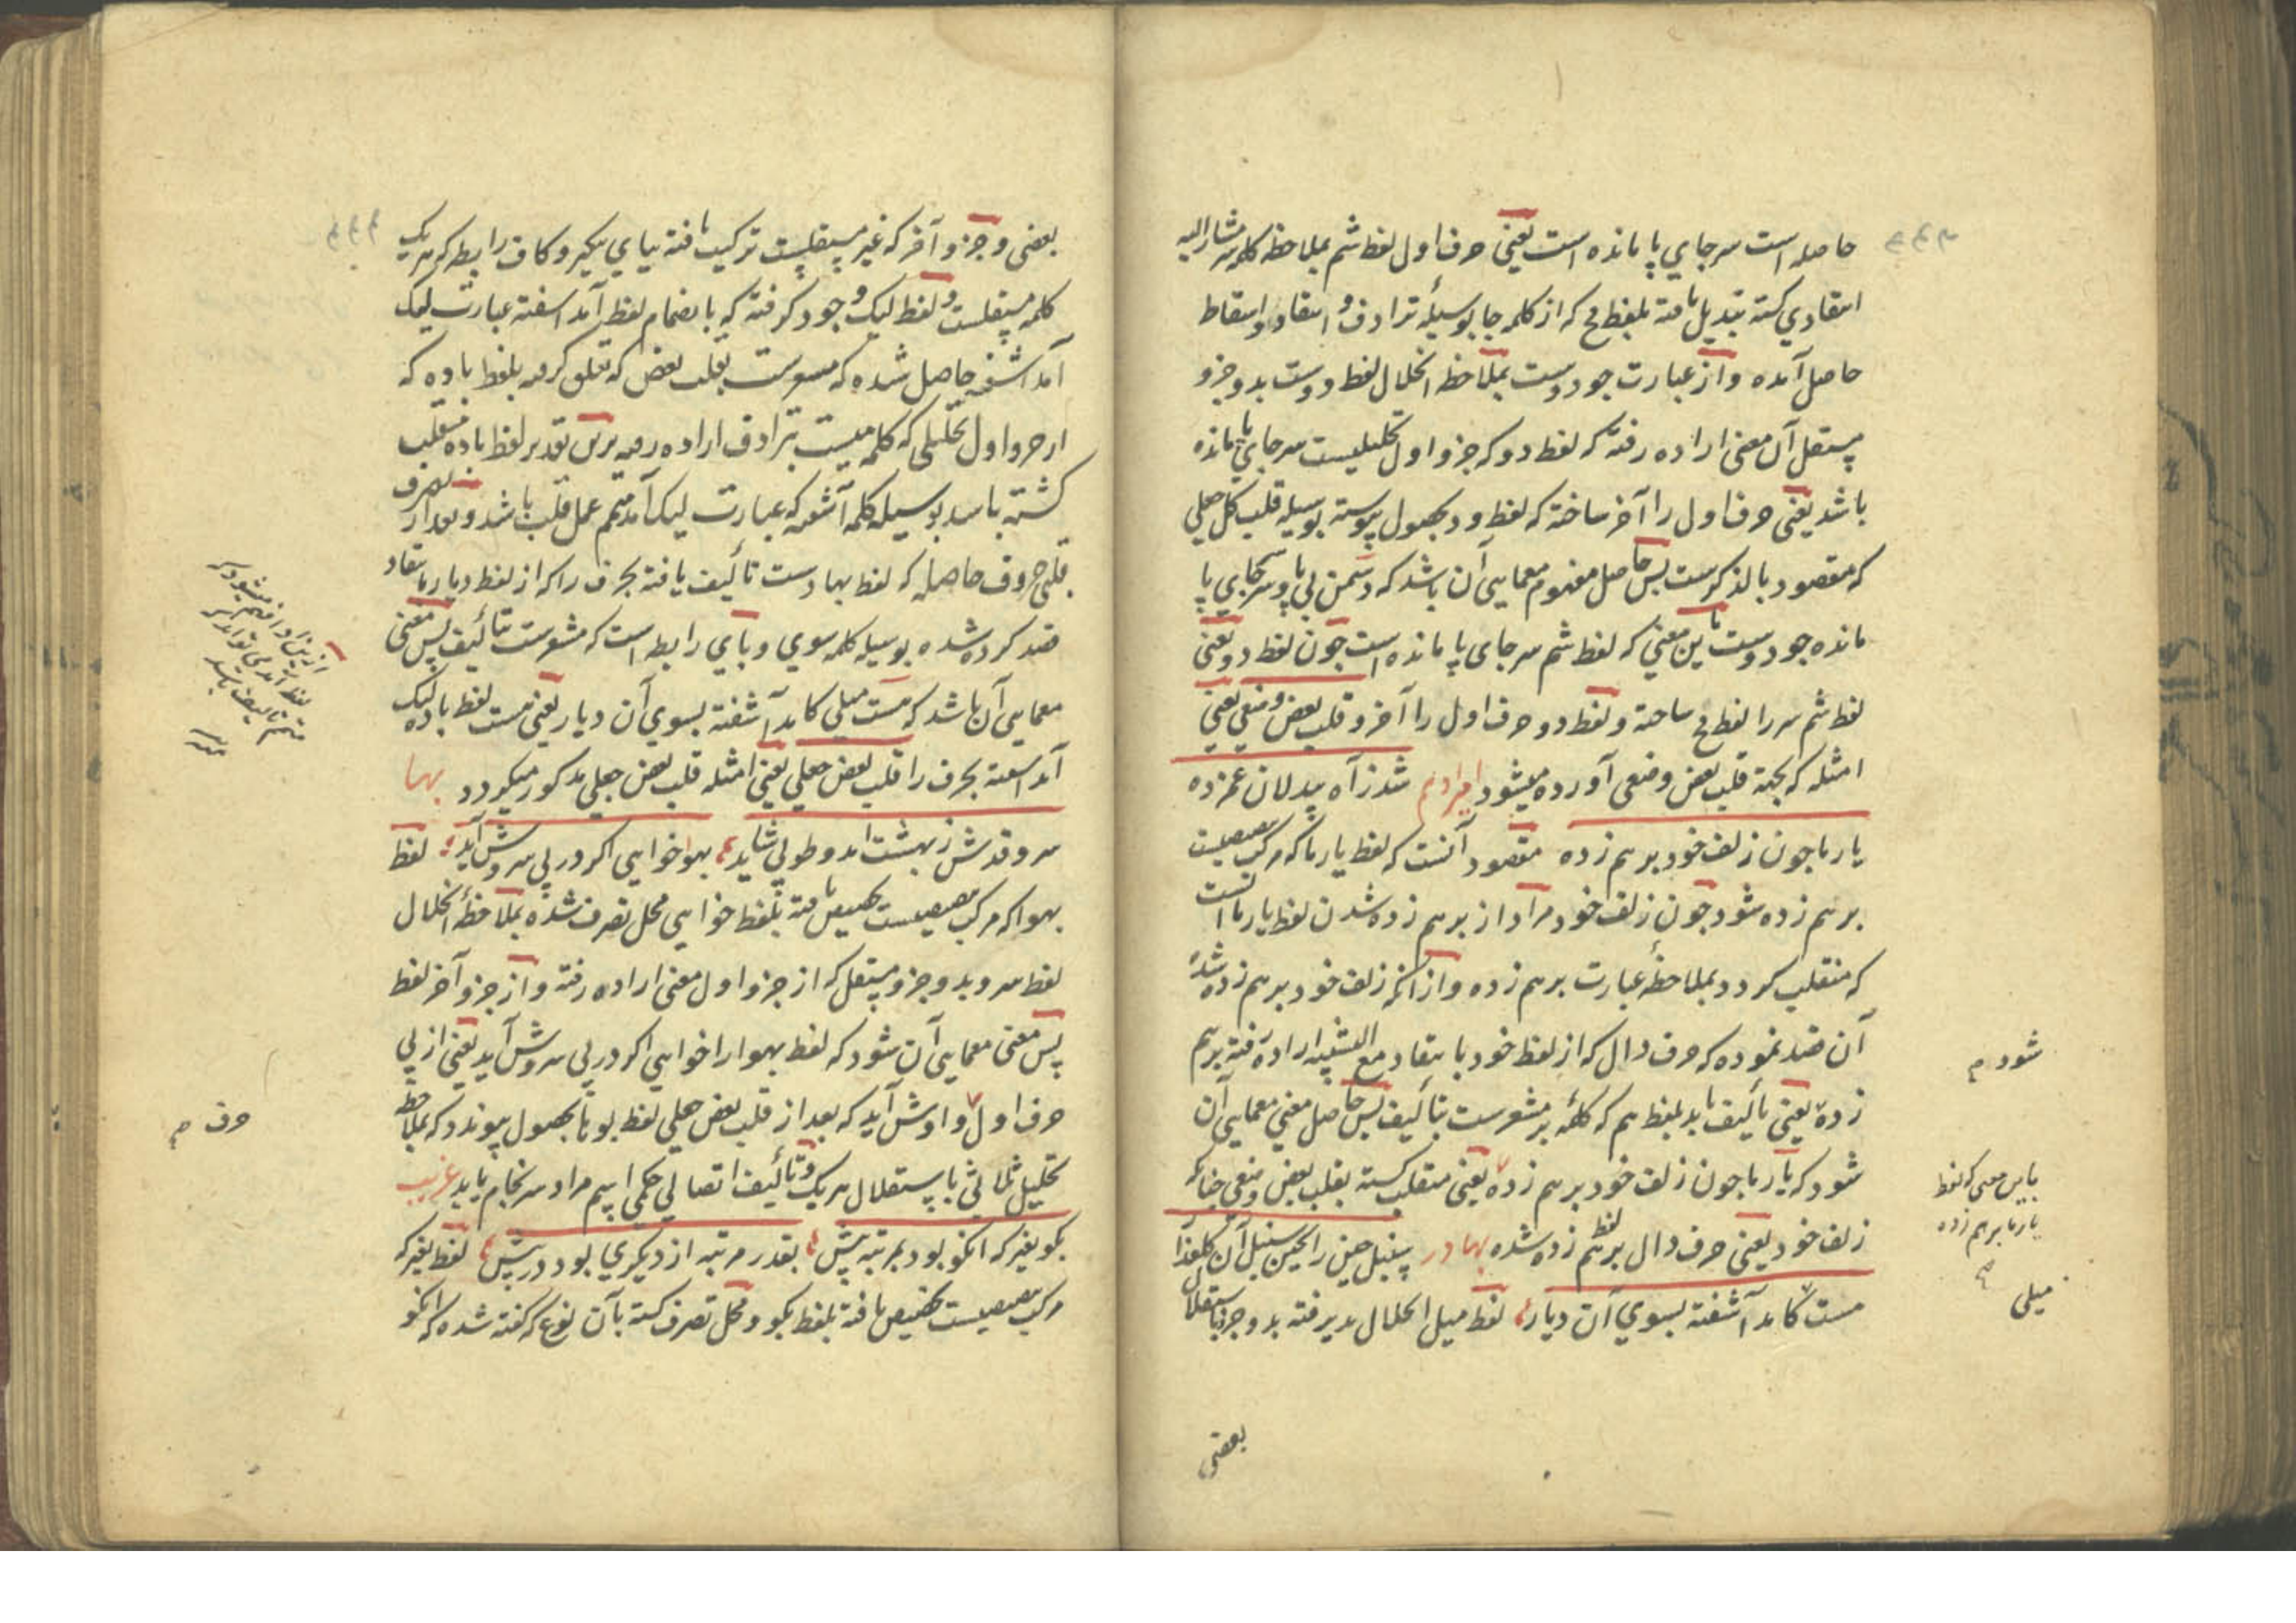 حاصله است سر جاي پا مانده است يعني حرف اول لفظ شم بملاحظه كلمه سر مشار اليه
انتقادي كشته تبديل يافته بلفظ ج كه از كلمه جا بوسيلهٔ ترادف و انتقاد و اسقاط
حاصل آمده و از عبارت جو دوست بملاحظه انحلال لفظ دوست بدو جزو
مستقل آن معنى اراده رفته كه لفظ دو كه جزو اول تحليليست سر جاي پا مانده
باشد يعني حرف اول را آخر ساخته كه لفظ ود بحصول پيوسته بوسيله قلب كل جعلي
كه مقصود بالذكرست پس حاصل مفهوم معمايى آن باشد كه دشمن بي پا و سر بجاي پا
مانده جو دوست باين معني كه لفظ شم سر جاى پا مانده است جون لفظ دو يعني
لفظ شم سر را لفظ ج ساخته و لفظ دو حرف اول را آخر و قلب بعض وضعي يعني
امثله كه بجهة قلب بعض وضعى آورده ميشود شد ز آه بيدلان غمزده
يار ما جون زلف خود برهم زده مقصود آنست كه لفظ يار ما كه مركب
برهم زده شود جون زلف خود مراد از برهم زده شدن لفظ يار ما آنست
كه منقلب كردد بملاحظهٔ عبارت برهم زده و از انكه زلف خود برهم زده شد
آن قصد نموده كه حرف دال كه از لفظ خود با انتقاد مع التشبيه اراده رفته برهم
زده يعني تأليف يابد بلفظ هم كه كلمهٔ بر مشعرست بتأليف پس حاصل معني معمايى آن
شود كه يار ما جون زلف خود برهم زده يعني منقلب كشته بقلب بعض وضعي جنانكه
زلف خود يعني حرف دال بر لفظ هم زده شده بهادر
مست كامد آشفته بسوي آن ديار لفظ ميل انحلال پذيرفته بدو جزو باستقلال
بعضى
شود م
باين معنى كه لفظ
يار ما برهم زده
ميلى
بعضى و جزو آخر كه غير مستقلست تركيب يافته بياي نكير و كاف رابط كه هر يك
كلمه مستقلست و لفظ ليك وجود كرفته كه بانضمام لفظ آمد اشفته عبارت ليك
آمد اشفته حاصل شده كه مشعرست بقلب بعض كه تعلق كرفته بلفظ باده كه
از جزو اول تحليلي كه كلمه ميست بترادف اراده رفته برين تقدير لفظ باده منقلب
كشته باشد بوسيله كلمه آشفته كه عبارت ليك آمد متمم عمل قلب باشد و بعد از تصرف
قلبي حروف حاصله كه لفظ بهادست تأليف يافته بحرف را كه از لفظ ديار بانتقاد
قصد كرده شده بوسيله كلمه سوي و باي رابط است كه مشعرست بتأليف پس معني
معمايى آن باشد كه مست ميلى كامد آشفته بسوي آن ديار يعني مست لفظ باده ليك
آمد اشفته بحرف را قلب بعض جعلي يعني امثله قلب بعض جعلي مذكور ميكردد بها
سرو قدش ز بهشت امد و طوبي شايد بهوا خواهى اكر در پي سروش آيد لفظ
بهوا كه مركب تخصيص يافته بلفظ خواهى محل تصرف شده بملاحظهٔ انحلال
لفظ سرو بدو جزو مستقل كه از جزو اول معنى اراده رفته و از جزو آخر لفظ
پس معنى معمايى آن شود كه لفظ بهوا را خواهى اكر در پى سروش آيد يعني از پي
حرف اول واوش آيد كه بعد از قلب بعض جعلي لفظ بحصول پيوندد كه بملاحظه
تحليل ثلاثي باستقلال هر يك و تأليف اتصالي حكمى اسم مراد سرنجام يابد غريب
بكو بغير كه انكو بود بمرتبه پيش بقدر مرتبه از ديكري بود در پيش لفظ بغير كه
مركب تخصيص يافته بلفظ بكو و محل تصرف كشته بآن نوع كه كفته شده كه انكو
حرف م